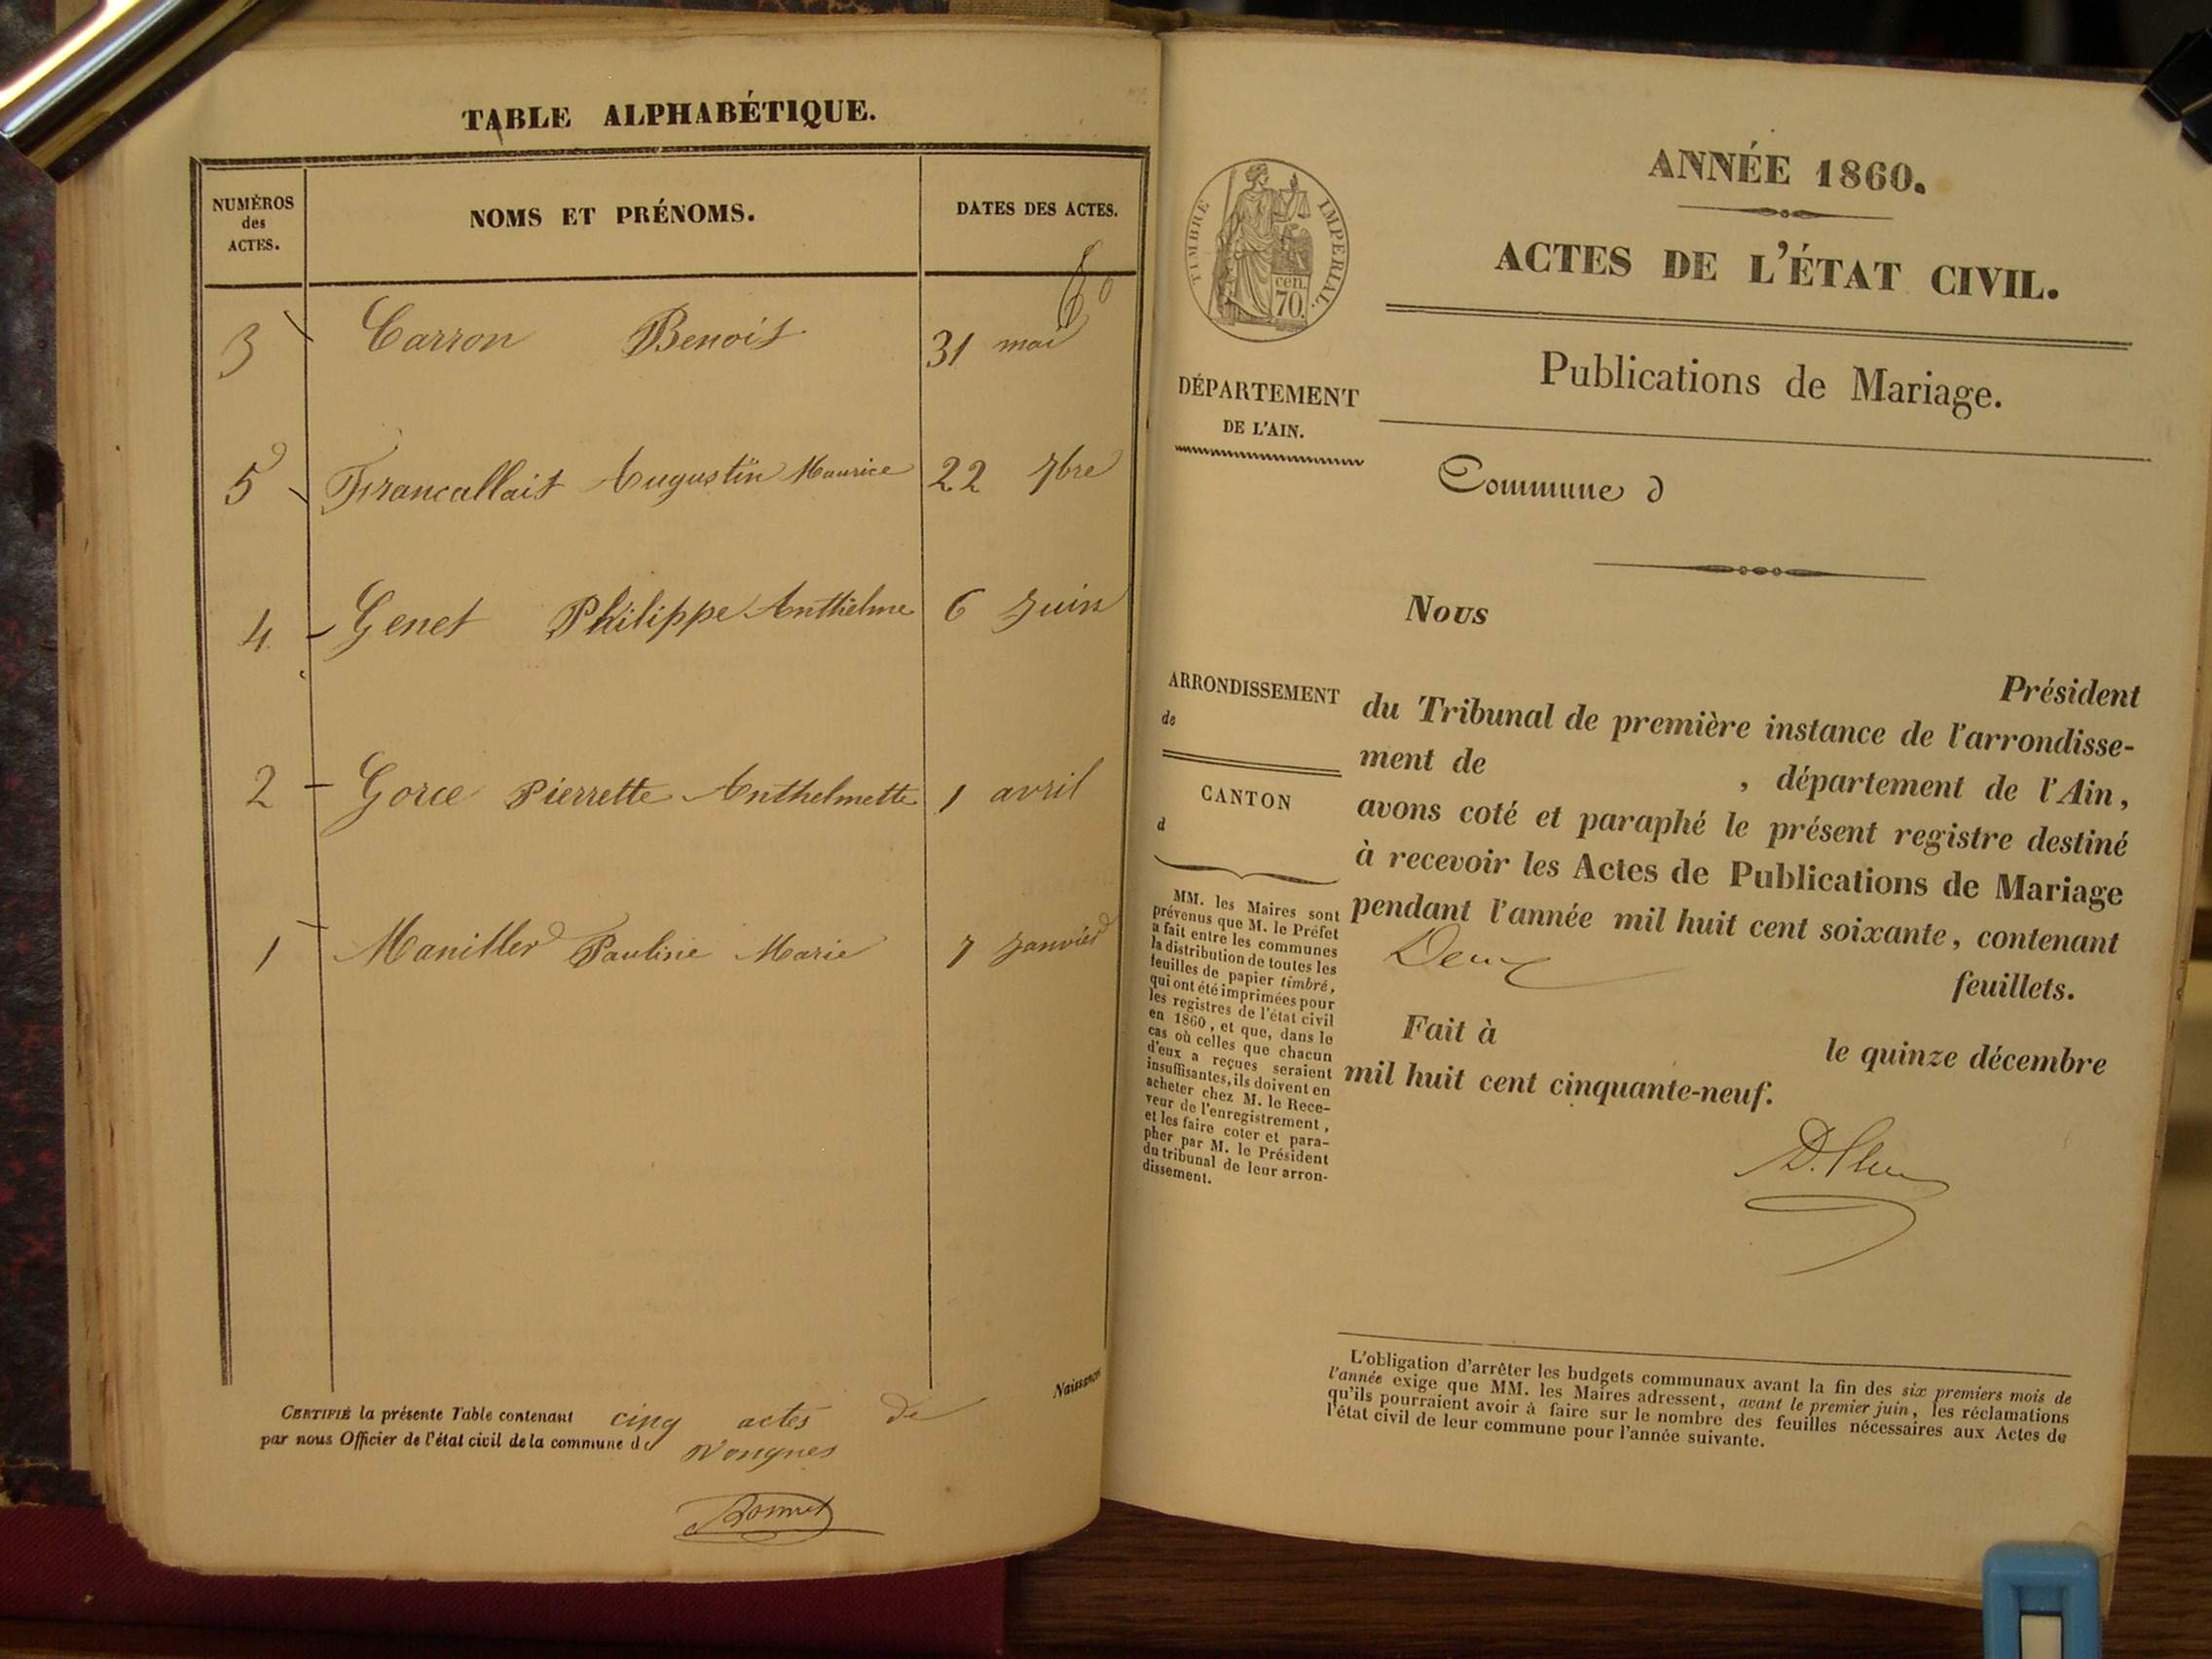 TABLE ALPHABÉTIQUE.
NUMÉROS
des
ACTES.
NOMS ET PRÉNOMS.
DATES DES ACTES.
60
3 Carron Benoit 31 mai
5 Francallait Augustin Maurice 22 7bre
4 Genet Philippe Anthelme 6 Juin
2 Gorce Pierrette Anthelmette 1 avril
1 Manitler Pauline Marie 7 Janvier
Naissances
CERTIFIÉ la présente Table contenant cinq actes de
par nous Officier de l'état civil de la commune de Vongnes
ANNÉE 1860.
TIMBRE IMPÉRIAL.
cen.
70.
ACTES DE L'ÉTAT CIVIL.
Publications de Mariage.
DÉPARTEMENT
DE L'AIN.
Commune d
Nous
Président
ARRONDISSEMENT
de
CANTON
d
du Tribunal de première instance de l'arrondisse-
ment de , département de l'Ain,
avons coté et paraphé le présent registre destiné
à recevoir les Actes de Publications de Mariage
pendant l'année mil huit cent soixante, contenant
Deux feuillets.
Fait à le quinze décembre
mil huit cent cinquante-neuf.
MM. les Maires sont
prévenus que M. le Préfet
a fait entre les communes
la distribution de toutes les
feuilles de papier timbré,
qui ont été imprimées pour
les registres de l'état civil
en 1860, et que, dans le
cas où celles que chacun
d'eux a reçues seraient
insuffisantes, ils doivent en
acheter chez M. le Rece-
veur de l'enregistrement,
et les faire coter et para-
pher par M. le Président
du tribunal de leur arron-
dissement.
L'obligation d'arrêter les budgets communaux avant la fin des six premiers mois de
l'année exige que MM. les Maires adressent, avant le premier juin, les réclamations
qu'ils pourraient avoir à faire sur le nombre des feuilles nécessaires aux Actes de
l'état civil de leur commune pour l'année suivante.